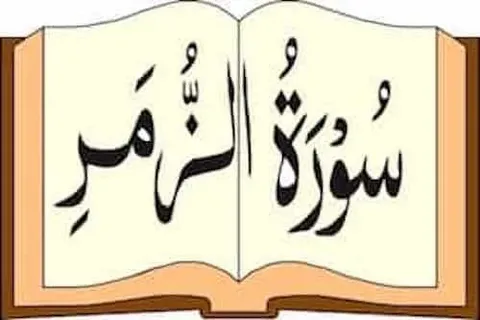 سُوْرَةُ الزُّمَرِ